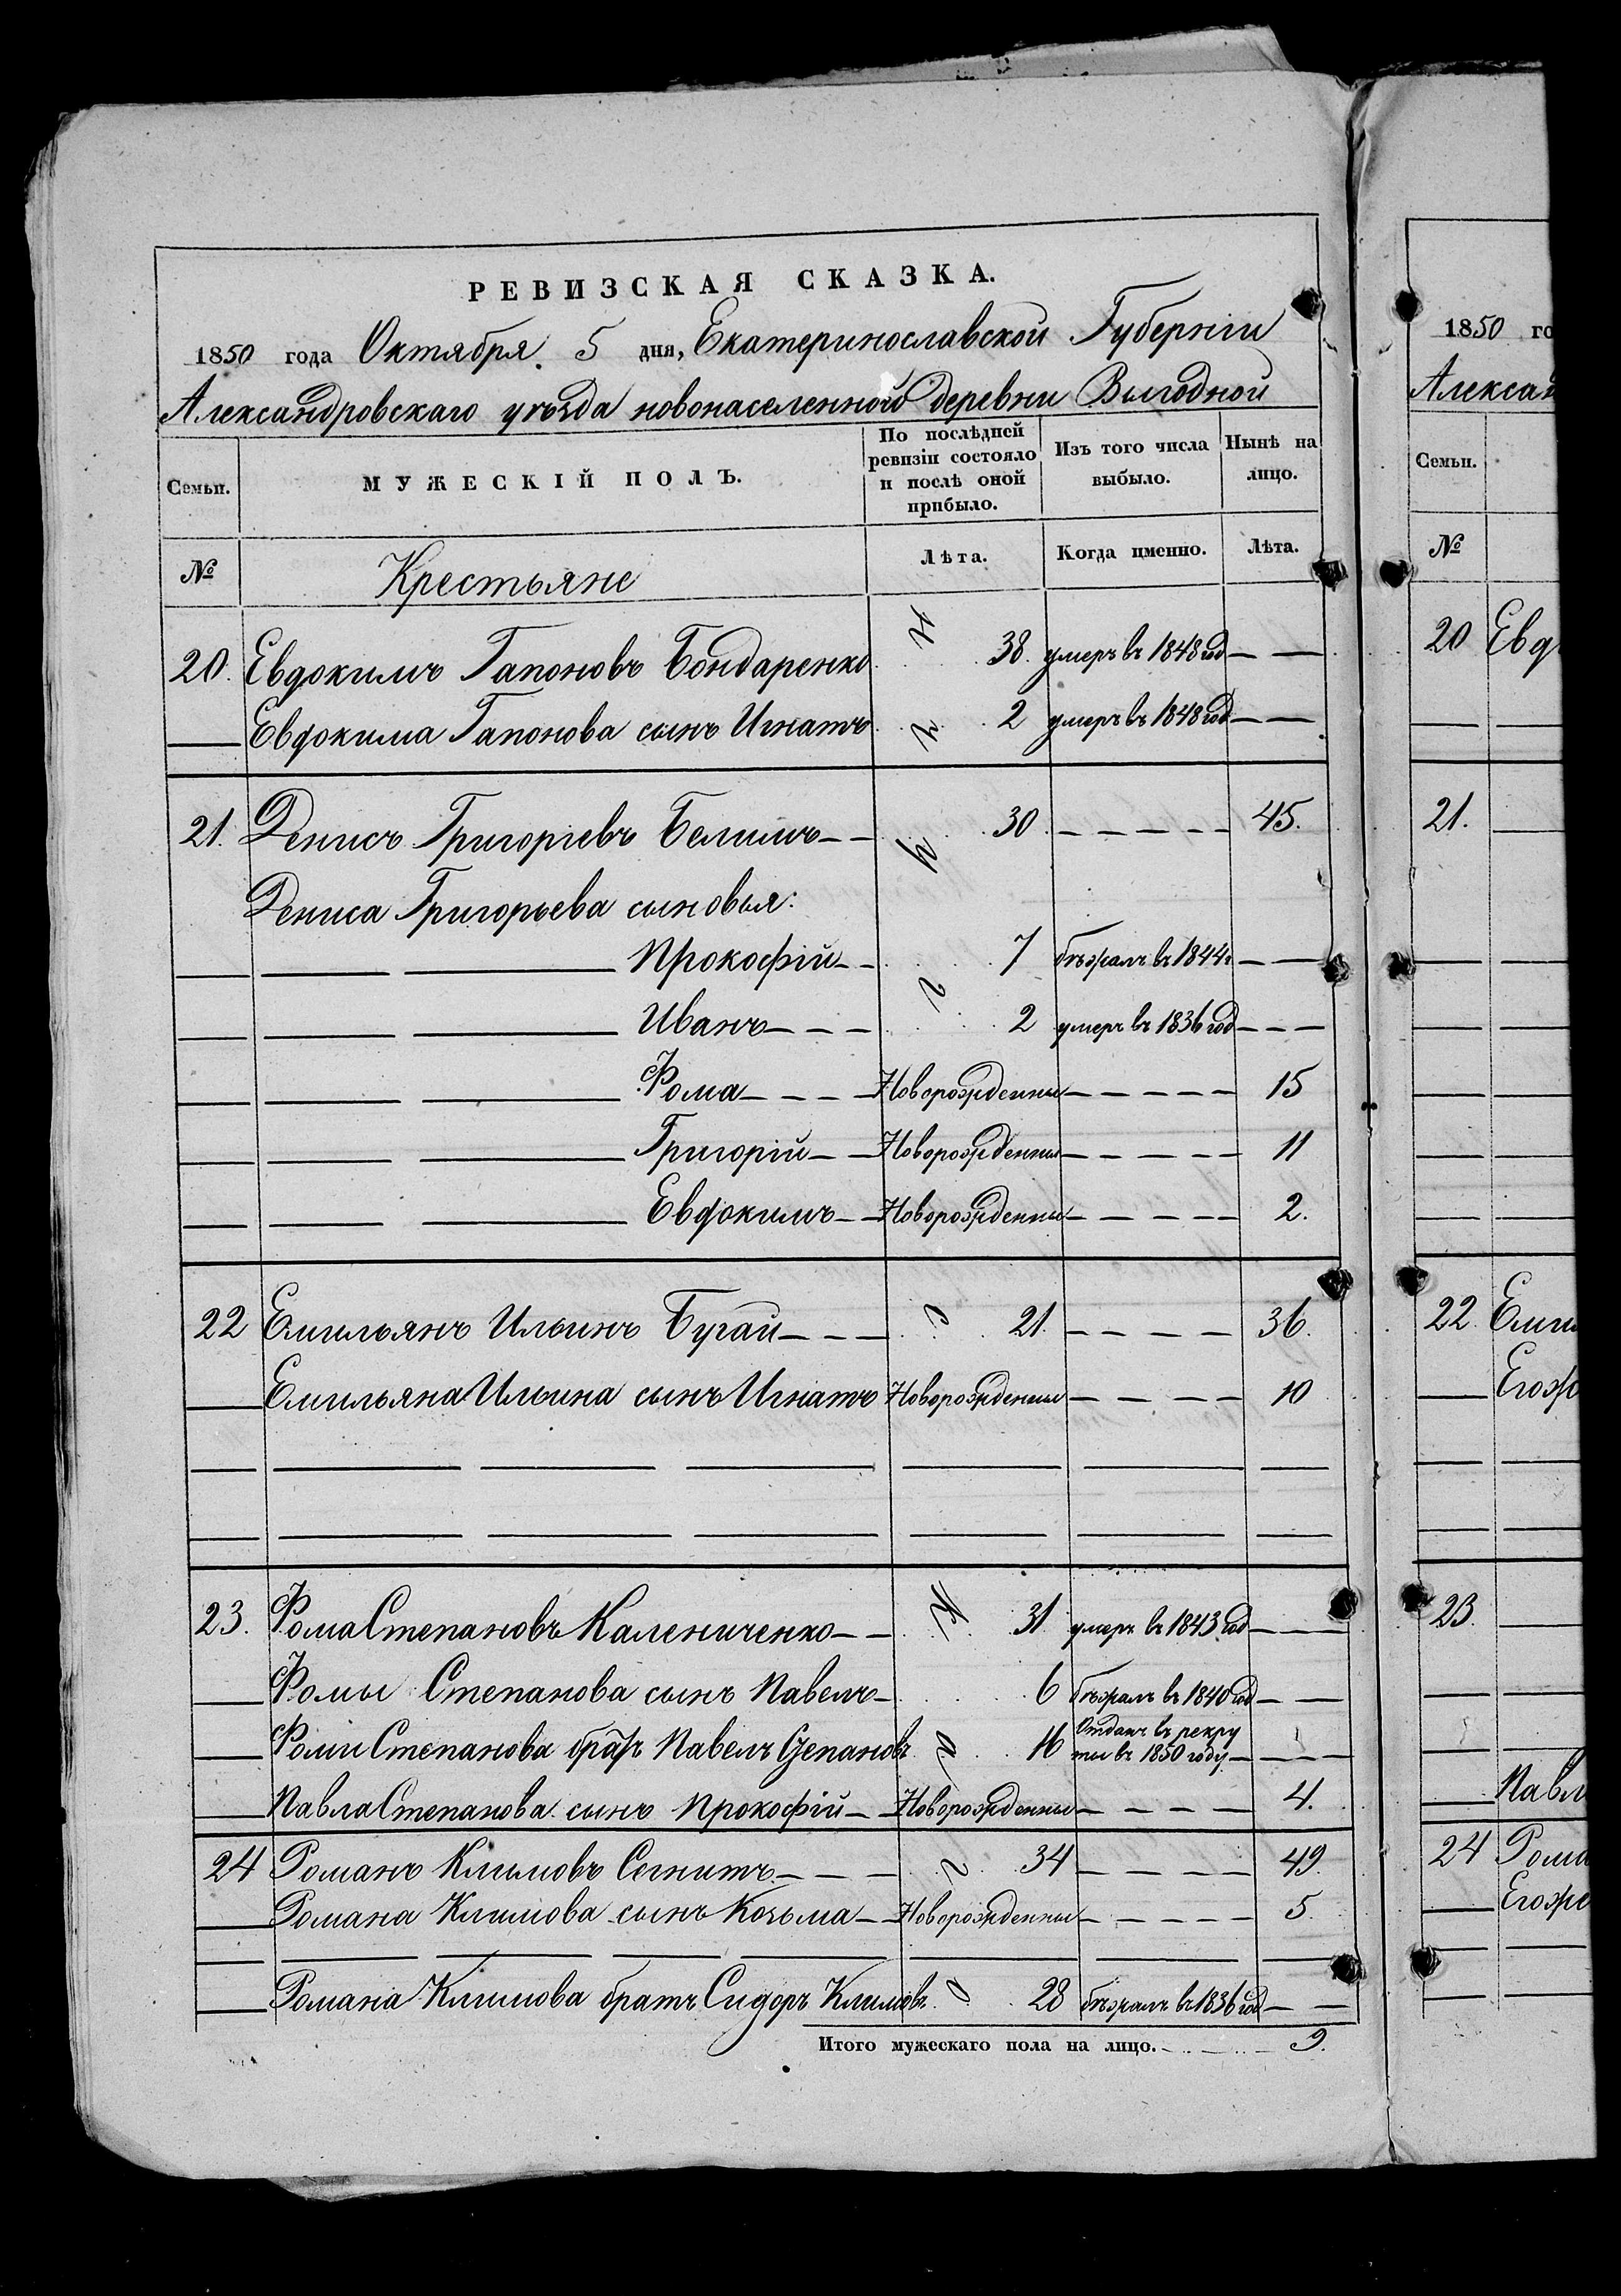 РЕВИЗСКАЯ СКАЗКА.
1850 года Октября 5 дня, Екатеринославской Губерніи
Александровскаго уѣзда новонаселенной деревни Выгодной
Семьи. МУЖЕСКІЙ ПОЛЪ. По послѣдней ревизіи состояло и послѣ оной прибыло. Изъ того числа выбыло. Нынѣ на лицо.
№ Крестьяне Лѣта. Когда именно. Лѣта.
20. Евдокимъ Гапоновъ Бондаренко 38. умеръ въ 1848 год
Евдокима Гапонова сынъ Игнатъ 2 умеръ въ 1848 год
21. Денисъ Григоріевъ Белимъ 30 45.
Дениса Григорьева сыновья:
Прокофій 7 бѣжалъ въ 1844г
Иванъ 2 умеръ въ 1836 год
Фома Новорожденный 15
Григорій Новорожденный 11
Евдокимъ Новорожденный 2.
22 Емильянъ Ильинъ Бугай 21. 36.
Емильяна Ильина сынъ Игнатъ Новорожденный 10
23. Фома Степановъ Калениченко 31 умеръ въ 1843 год
Фомы Степанова сынъ Павелъ 6 бѣжалъ въ 1840 год
Фомы Степанова братъ Павелъ Степановъ 16 Отданъ въ рекруты въ 1850 году
Павла Степанова сынъ Прокофій Новорожденный 4.
24 Романъ Климовъ 34 49.
Романа Климова сынъ Козьма Новорожденный 5.
Романа Климова братъ Сидоръ Климовъ 28 бѣжалъ въ 1836 год
Итого мужескаго пола на лицо. 9.
1850 го
Александ
Семьи.
№
20 Евд
21.
22. Емил
Егож
23.
Павл
24 Рома
Егоже